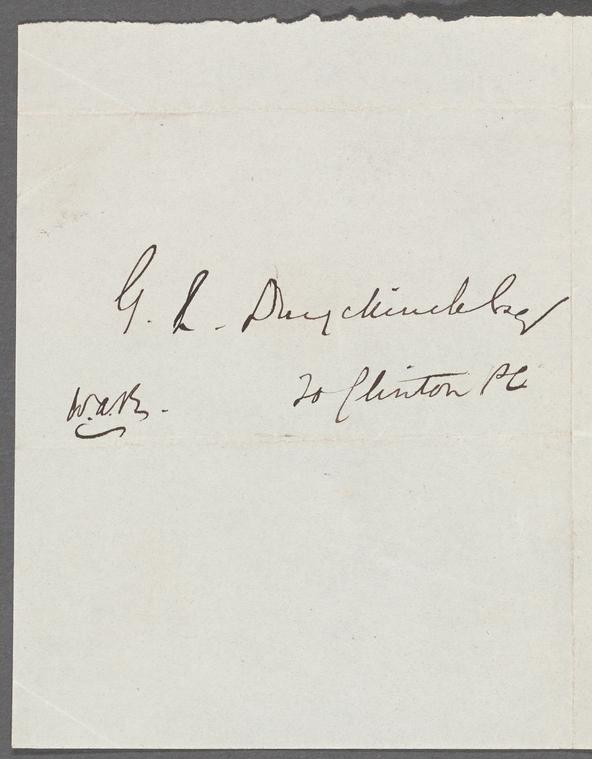 G. L. Duyckinck Esq
W.A.B. 20 Clinton Pl